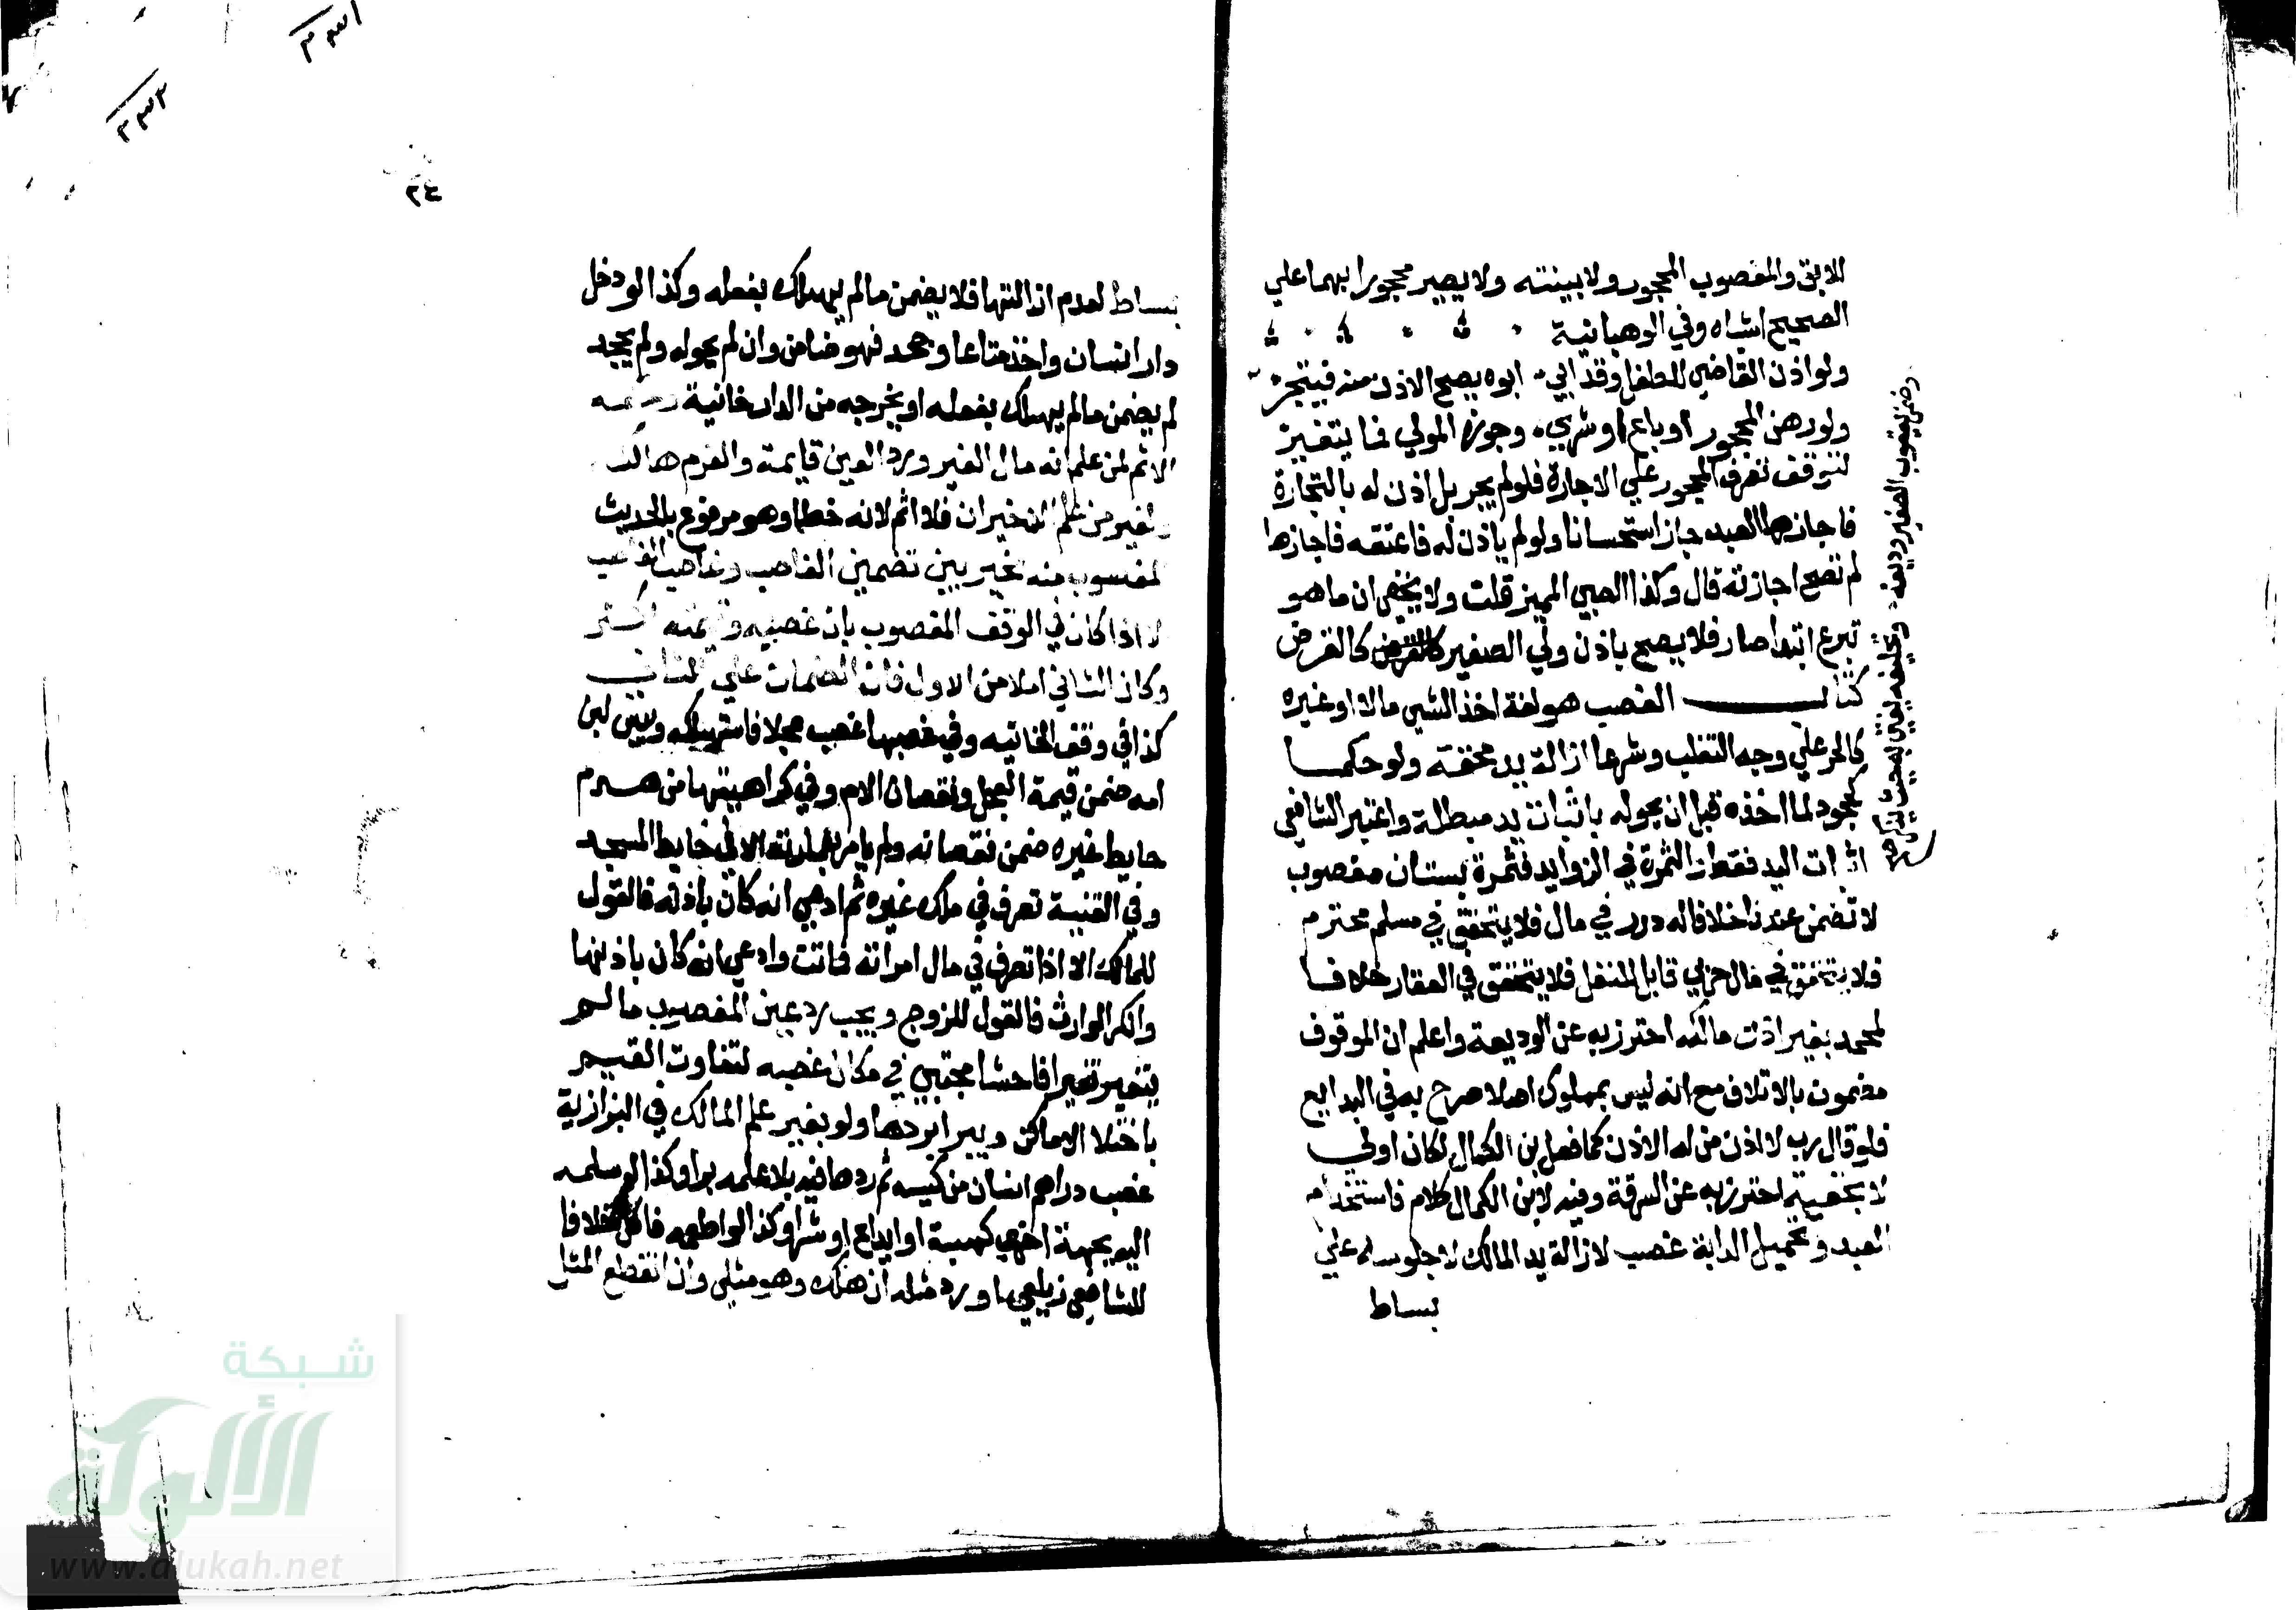 للابق والمغصوب المحجور ولا بينته ولا يصير محجورا بهما علي
الصحيح اشباه وفي الوهبانية
ولو اذن القاضي للطفل وقد ابي ابوه يصح الاذن منه فيتجر
ولو رهن المحجور او باع او شري وجوزه المولي فما يتغيز
لتوقف تصرف المحجور علي الاجازة فلو لم يجز بل اذن له بالتجارة
فاجازها العبد جاز استحسانا ولو لم ياذن له فاعتقه فاجازها
لم تصح اجازته قال وكذا الصبي المميز قلت ولا يخفي ان ما هو
تبرع ابتدا صار فلا يصح باذن ولي الصغير كالقرض
كتاب الغصب هو لغة اخذ الشي مالا او غيره
كالحر علي وجه التغلب وشرعا ازالة يد محقة ولو حكما
كجحود لما اخذه قبل ان يحوله باثبات يد مبطلة واعتبر الشافعي
اثبات اليد فقط والثمرة في الزوايد فثمرة بستان مغصوب
لا تضمن عندنا خلافا له درر في مال فلا يتحقق في مسلم محترم
فلا يتحقق في مال حربي قابل للنقل فلا يتحقق في العقار خلافا
لمحمد بغير اذن مالكه احترز به عن الوديعة واعلم ان الموقوف
مضمون بالاتلاف مع انه ليس بمملوك اصلا صرح به في البدايع
فلو قال بلا اذن من له الاذن كما فعل بن الكمال لكان اولي
لا بخفية احترز به عن السرقة وفيه لابن الكمال كلام فاستخدام
العبد وتحميل الدابة غصب لازالة يد المالك لا جلوسه علي
بساط
وضمن يعقوب الصغير وديعة وتحليفه يفتي به حيث ينكر
٢٣١
٢٣٢
٢٤
بساط لعدم ازالتها فلا يضمن ما لم يهلك بفعله وكذا لو دخل
دار انسان واخذ متاعا وجحد فهو ضامن وان لم يحوله ولم يجحد
لم يضمن ما لم يهلك بفعله او يخرجه من الدار خانية وحكمه
الاثم لمن علم انه مال الغير ورد العين قايمة والغرم هالكة
ولغير من علم الاخيران فلا اثم لانه خطا وهو مرفوع بالحديث
المغصوب منه مخير بين تضمين الغاصب وغاصب الغاصب
الا اذا كان في الوقف المغصوب بان غصبه وقيمته اكثر
وكان الثاني املا من الاول فان الضمان علي الثاني
كذا في وقف الخانيه وفي غصبها غصب عجلا فاستهلكه ويبس لبن
امه ضمن قيمة العجل ونقصان الام وفي كراهيتها من هدم
حايط غيره ضمن نقصانه ولم يامر بعمارته الا في حايط المسجد
وفي القنية تصرف في ملك غيره ثم ادعي انه كان باذنه فالقول
للمالك الا اذا تصرف في مال امراته فماتت وادعي انه كان باذنها
وانكر الوارث فالقول للزوج ويجب رد عين المغصوب ما لم
يتغير تغيرا فاحشا مجتبي في مكان غصبه لتفاوت القيم
باختلا الاماكن ويبرا بردها ولو بغير علم المالك في البزازية
غصب دراهم انسان من كيسه ثم ردها فيه بلا علمه برا وكذا لو سلمه
اليه بجهة اخري كهبة او ايداع او شرا وكذا لو اطعمه فاكل خلافا
للشافعي زيلعي او رد مثله ان هلك وهو مثلي وان انقطع المثل
شبكة
الألوكة
www.alukah.net